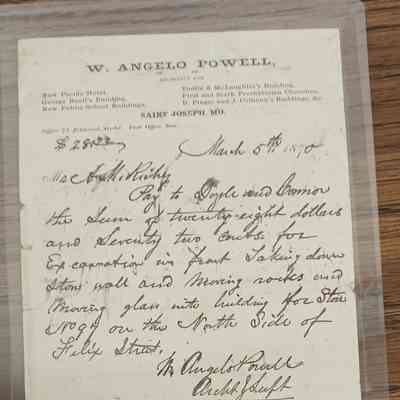 W. ANGELO POWELL,
ARCHITECT FOR
New Pacific Hotel,
George Buell's Building,
New Public School Buildings,
Tootle & McLaughlin's Building,
First and Sixth Presbyterian Churches,
D. Pinger and J. Colhoun's Buildings, &c.
SAINT JOSEPH, MO.
Office
Post Office Box
$28.72
March 5th 1870
Pay to Doyle and Connor
the Sum of twenty eight dollars
and Seventy two cents for
Excavation in front Taking down
Stone wall and moving rocks and
moving glass into building for Store
No 9 on the North Side of
Felix Street.
W Angelo Powell
Archt & Supt